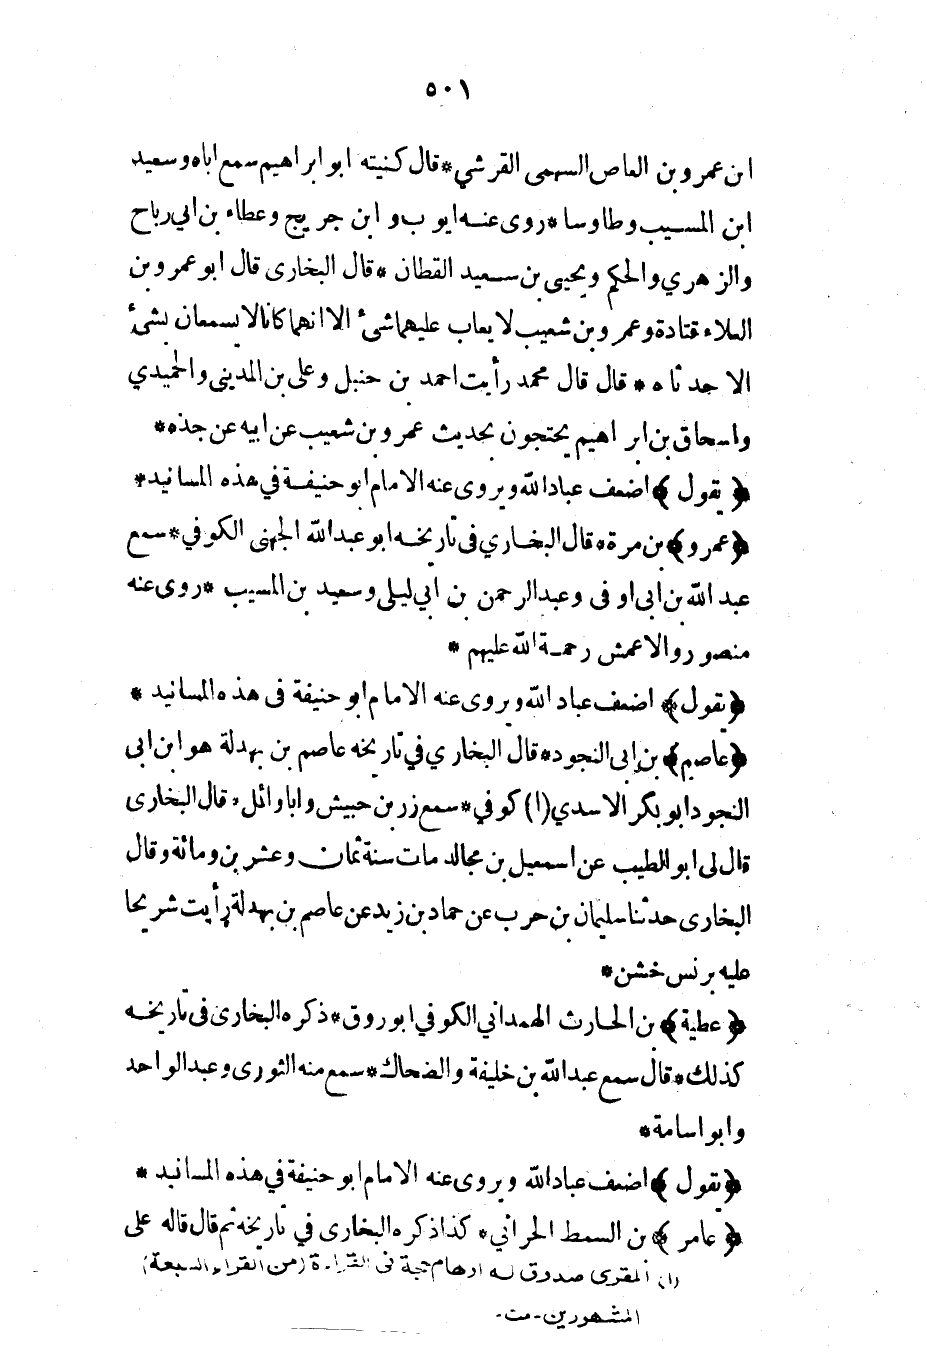 ٥٠١
ابن عمرو بن العاص السهمى القرشي * قال كنيته ابو ابراهيم سمع اباه وسعيد
ابن المسيب وطاوسا * روى عنه ايوب و ابن جريج وعطاء بن ابي رباح
والزهري والحكم ويحيى بن سعيد القطان * قال البخارى قال ابو عمرو بن
العلاء قتادة وعمرو بن شعيب لا يعاب عليهما شئ الا انهما كانا لا يسمعان بشئ
الا حدثا ه * قال قال محمد رأيت احمد بن حنبل وعلى بن المديني والحميدي
واسحاق بن ابراهيم يحتجون بحديث عمرو بن شعيب عن ابيه عن جده *
﴿ يقول ﴾ اضعف عباد الله ويروى عنه الامام ابو حنيفة في هذه المسانيد *
﴿ عمرو ﴾ بن مرة * قال البخاري فى تاريخه ابو عبد الله الجهنى الكوفي * سمع
عبد الله بن ابى اوفى وعبد الرحمن بن ابي ليلى وسعيد بن المسيب * روى عنه
منصور والاعمش رحمة الله عليهم *
﴿ يقول ﴾ اضعف عباد الله ويروى عنه الامام ابو حنيفة فى هذه المسانيد *
﴿ عاصم ﴾ بن ابى النجود * قال البخاري في تاريخه عاصم بن بهدلة هو ابن ابى
النجود ابو بكر الاسدي (١) كوفي * سمع زر بن حبيش وابا وائل * قال البخارى
قال لى ابو الطيب عن اسمعيل بن مجالد مات سنة ثمان وعشرين ومائة وقال
البخارى حدثنا سليمان بن حرب عن حماد بن زيد عن عاصم بن بهدلة رأيت شريحا
عليه برنس خشن *
﴿ عطية ﴾ بن الحارث الهمداني الكوفي ابو روق * ذكره البخارى فى تاريخه
كذلك * قال سمع عبد الله بن خليفة والضحاك * سمع منه الثورى وعبد الواحد
وابو اسامة *
﴿ يقول ﴾ اضعف عباد الله ويروى عنه الامام ابو حنيفة في هذه المسانيد *
﴿ عامر ﴾ بن السمط الحراني * كذا ذكره البخارى في تاريخه ثم قال قاله على
(١) المقرى صدوق له اوهام حجة فى القراءة (من القراء السبعة)
المشهورين - مت -